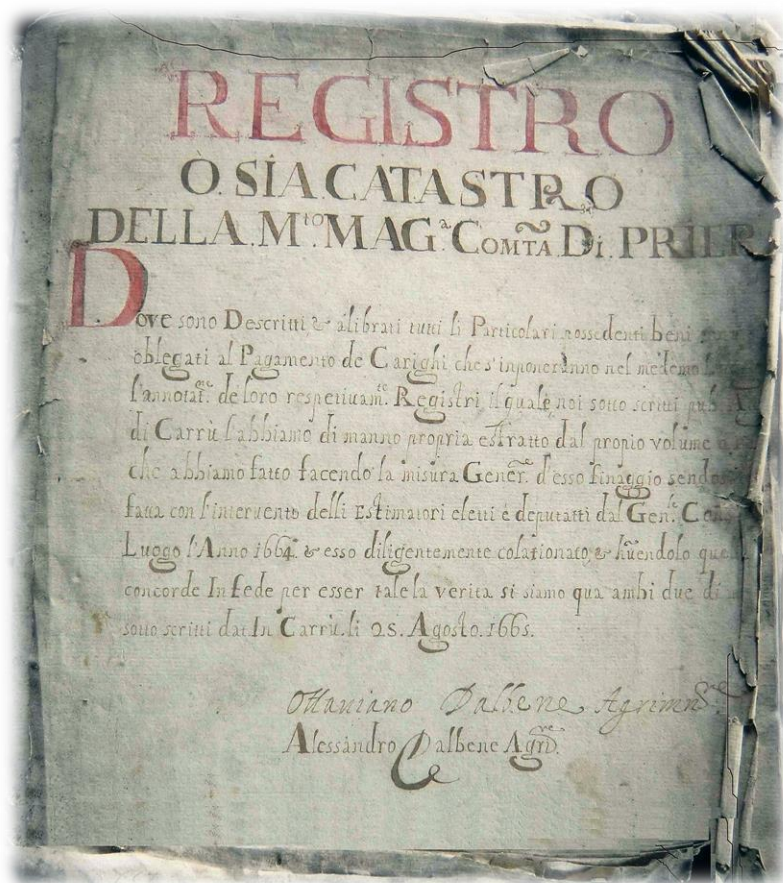 REGISTRO
O. SIA. CATASTRO
DELLA. Mto. MAGa. COMTÃ. Di. PRIER
Dove sono Descritti & alibrati tutti li Particolari possedenti beni
oblegati al Pagamento de Carighi che s'inponeranno nel medemo
l'annotat.ne de loro respetivam.te Registri il quale noi sotto scritti
di Carrù l'abbiamo di manno propria estratto dal propio volume
che abbiamo fatto facendo la misura Gener. d'esso finaggio
fatta con l'intervento delli Estimatori eletti è deputatti dal Gen.le
Luogo l'Anno 1664. & esso diligentemente colationato, & hũendolo
concorde In fede per esser tale la verita si siamo qua ambi due di
sotto scritti dat In Carrù. li 25. Agosto. 1665.
Ottaviano Dalbene Agrimens.re
Alessandro Dalbene Agri.re